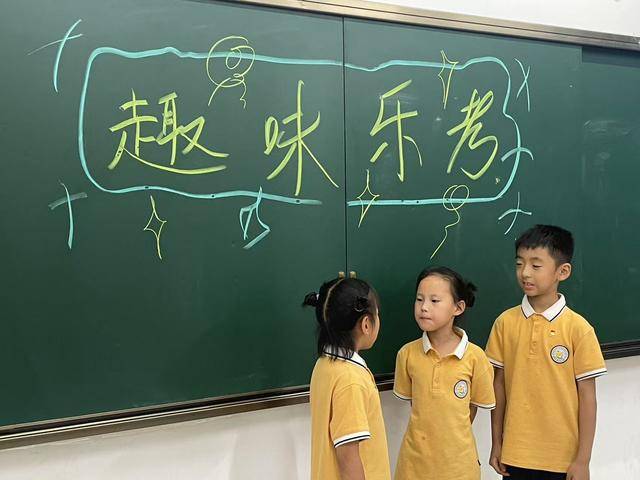 趣味乐考